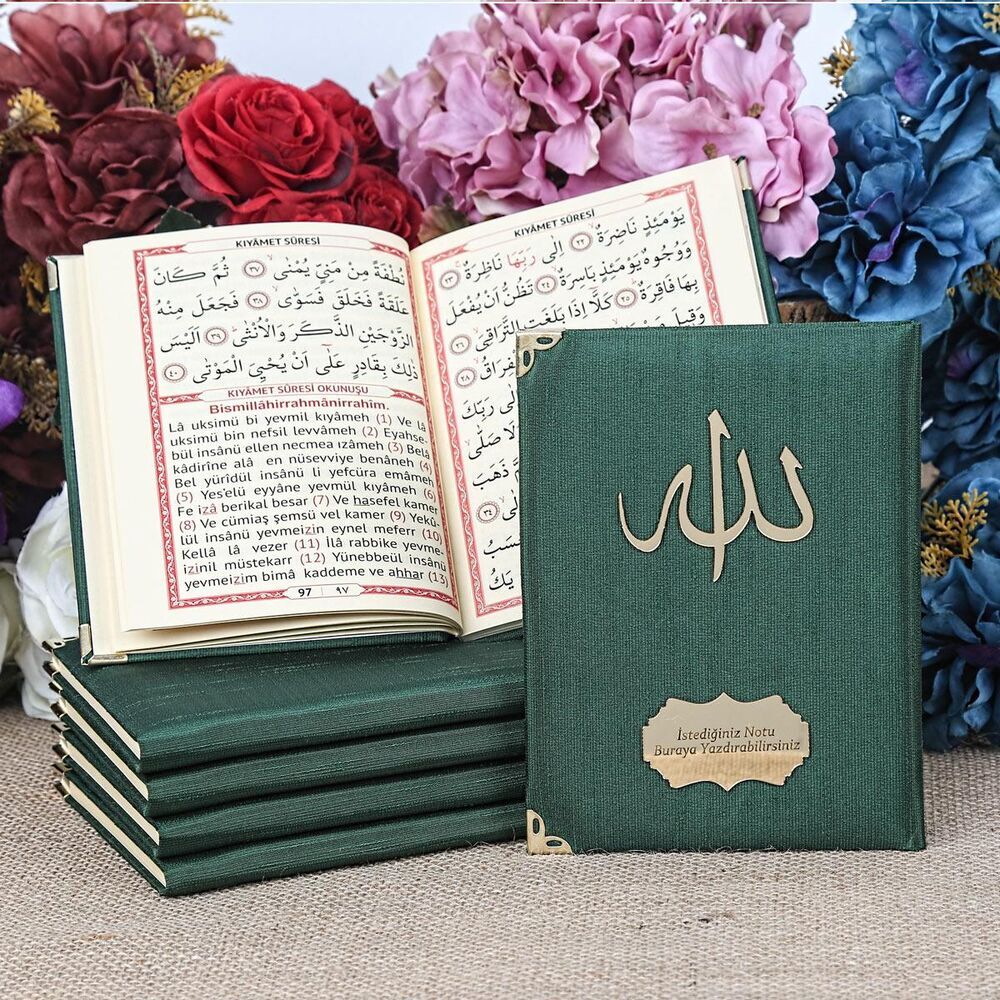 KIYÂMET SÛRESİ
نُطْفَةً مِنْ مَنِيٍّ يُمْنٰىۙ ﴿٣٧﴾ ثُمَّ كَانَ
عَلَقَةً فَخَلَقَ فَسَوّٰىۙ ﴿٣٨﴾ فَجَعَلَ مِنْهُ
الزَّوْجَيْنِ الذَّكَرَ وَالْاُنْثٰىۜ ﴿٣٩﴾ اَلَيْسَ
ذٰلِكَ بِقَادِرٍ عَلٰٓى اَنْ يُحْيِيَ الْمَوْتٰى ﴿٤٠﴾
KIYÂMET SÛRESİ OKUNUŞU
Bismillâhirrahmânirrahîm.
Lâ uksimü bi yevmil kıyâmeh (1) Ve lâ
uksimü bin nefsil levvâmeh (2) Eyahse-
bül insânü ellen necmea ızâmeh (3) Belâ
kâdirîne alâ en nüsevviye benâneh (4)
Bel yürîdül insânü li yefcüra emâmeh
(5) Yes'elü eyyâne yevmül kıyâmeh (6)
Fe izâ berikal besar (7) Ve hasefel kamer
(8) Ve cümiaş şemsü vel kamer (9) Yekû-
lül insânü yevmeizin eynel meferr (10)
Kellâ lâ vezer (11) İlâ rabbike yevme-
izinil müstekarr (12) Yünebbeül insânü
yevmeizim bimâ kaddeme ve ahhar (13)
97 ٩٧
KIYÂMET SÛRESİ
يَوْمَئِذٍ نَاضِرَةٌۙ ﴿٢٢﴾ اِلٰى رَبِّهَا نَاظِرَةٌۚ ﴿٢٣﴾
وَوُجُوهٌ يَوْمَئِذٍ بَاسِرَةٌۙ ﴿٢٤﴾ تَظُنُّ اَنْ يُفْعَلَ
بِهَا فَاقِرَةٌۜ ﴿٢٥﴾ كَلَّٓا اِذَا بَلَغَتِ التَّرَاقِيَۙ ﴿٢٦﴾
وَقٖيلَ
الْفِرَاقُۙ ﴿٢٨﴾
اِلٰى رَبِّكَ
لَا صَلّٰىۙ
ذَهَبَ
﴿٣٤﴾
يَكُ
الله
İstediğiniz Notu
Buraya Yazdırabilirsiniz